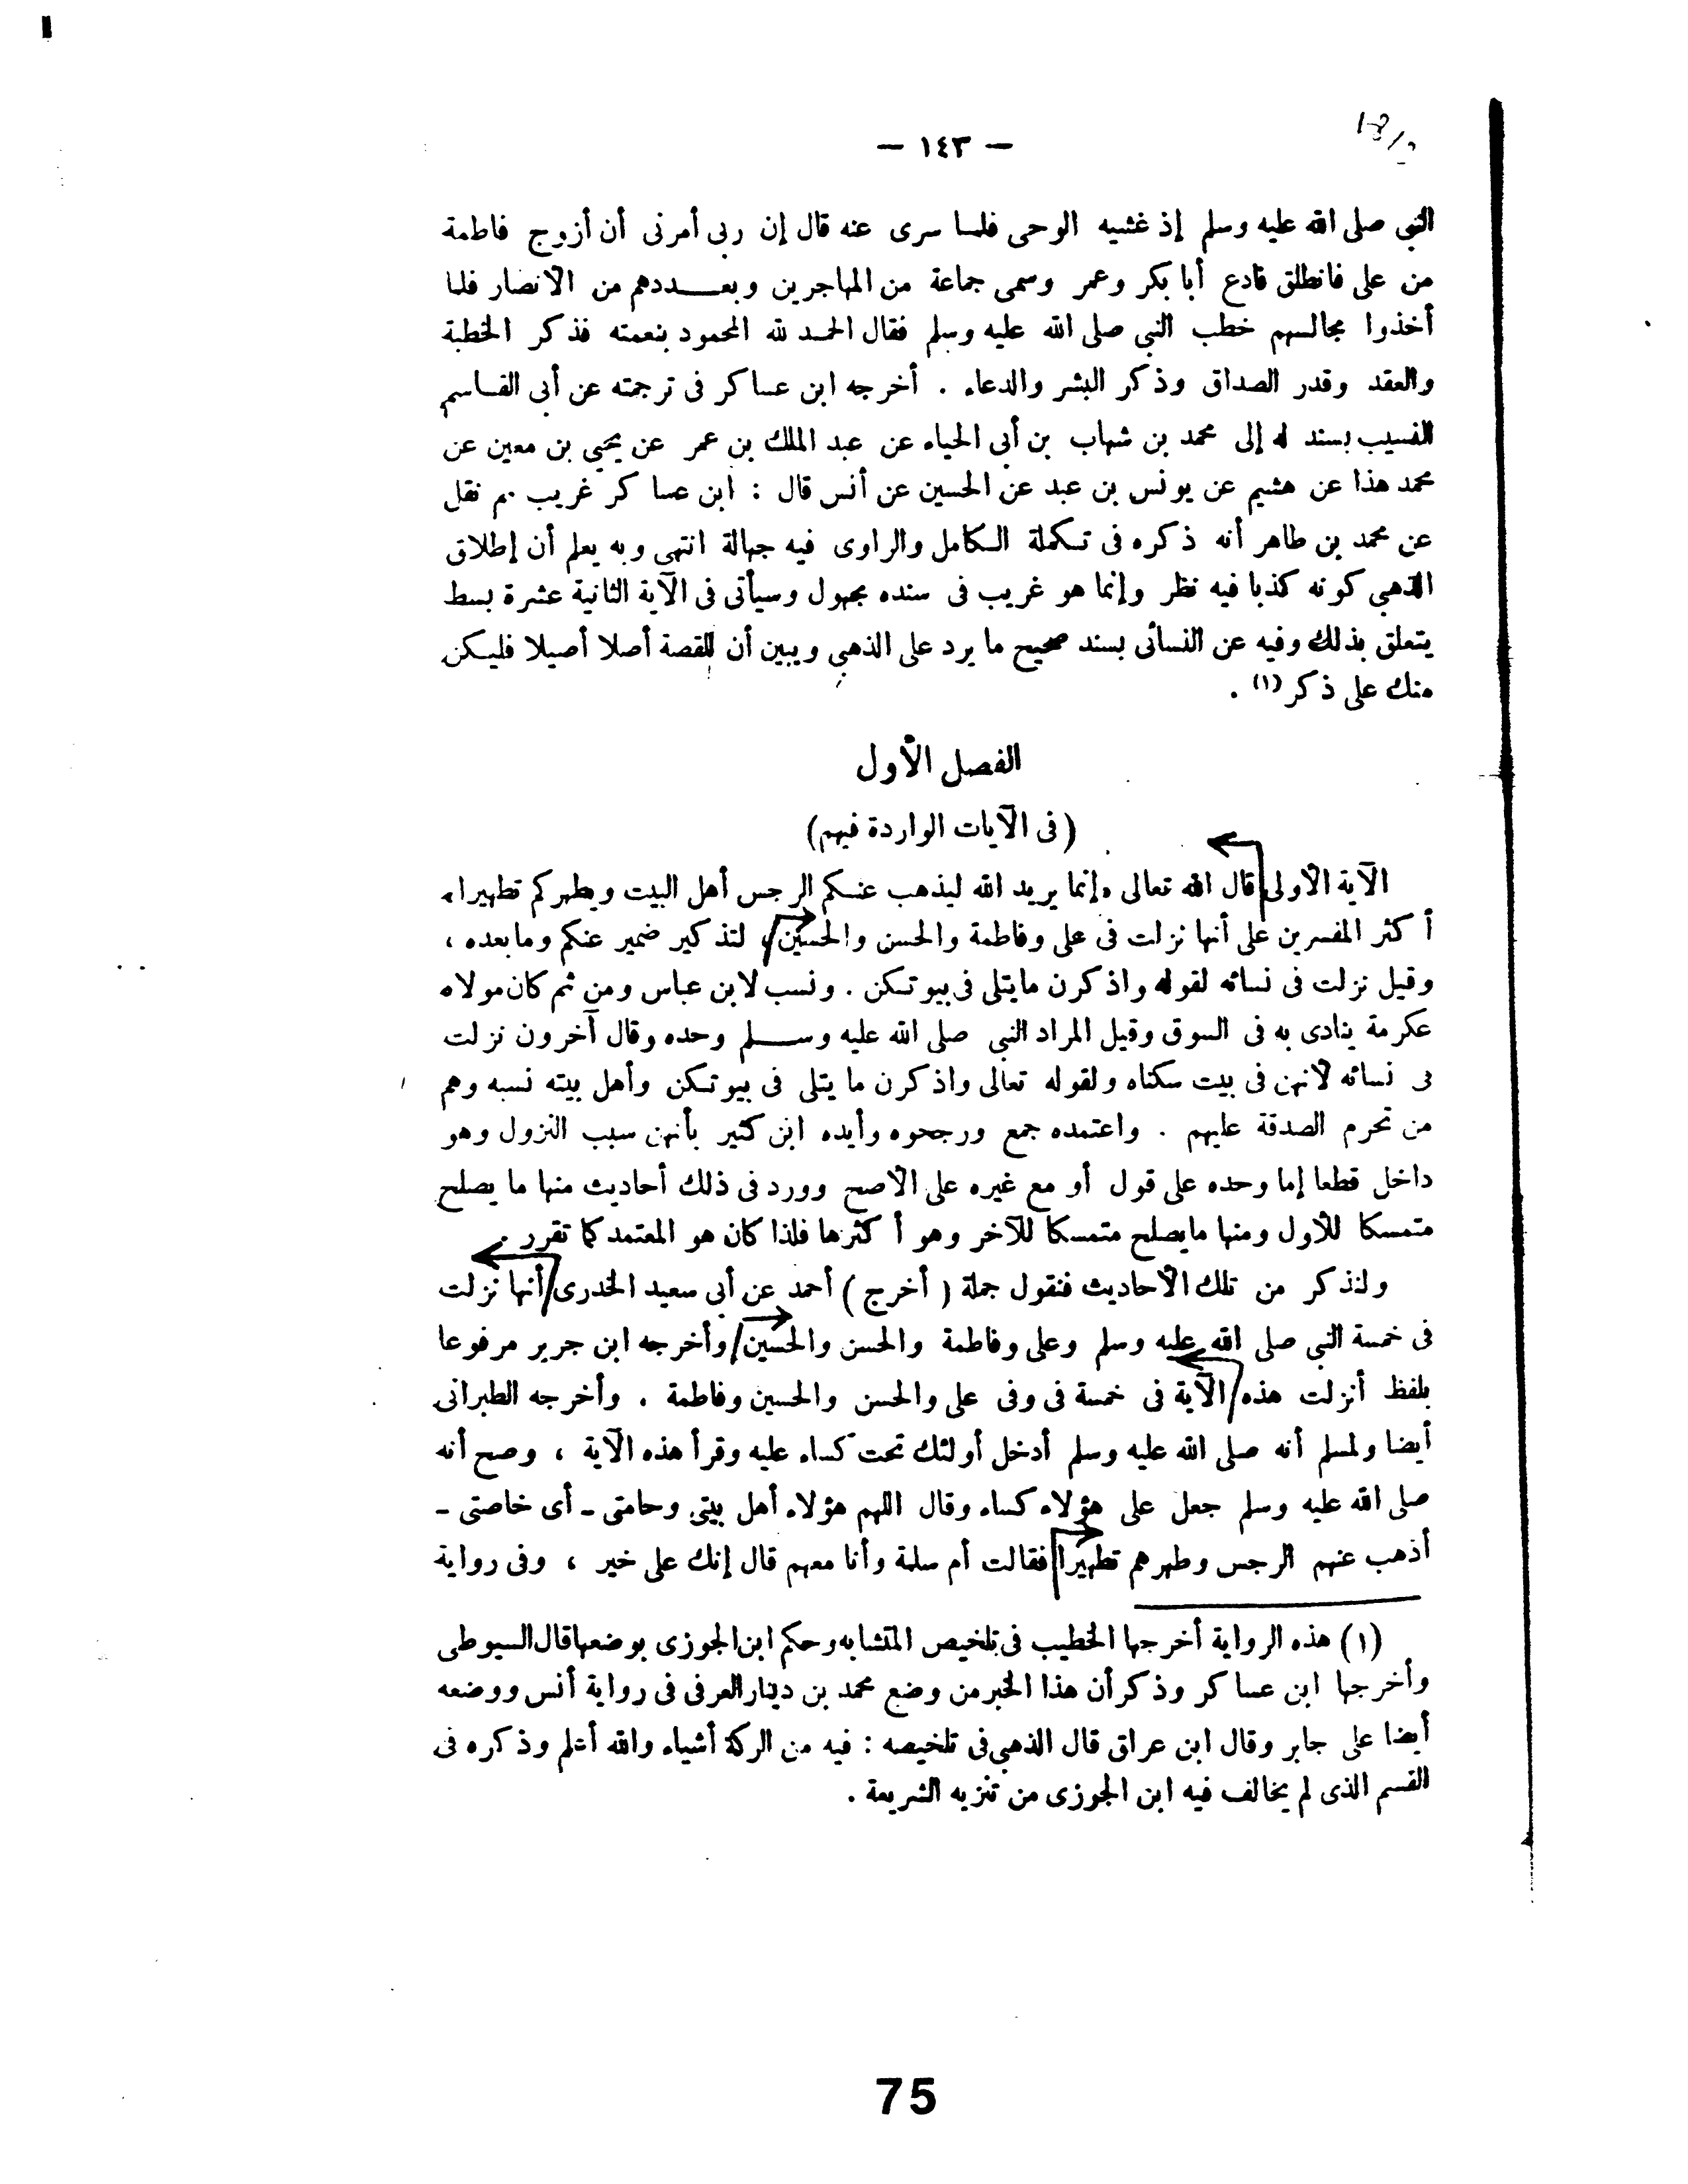 — ١٤٣ —
النبى صلى الله عليه وسلم إذ غشيه الوحى فلما سرى عنه قال إن ربى أمرنى أن أزوج فاطمة
من على فانطلق فادع أبا بكر وعمر وسمى جماعة من المهاجرين وبعددهم من الانصار فلما
أخذوا مجالسهم خطب النبى صلى الله عليه وسلم فقال الحمد لله المحمود بنعمته فذكر الخطبة
والعقد وقدر الصداق وذكر البشر والدعاء . أخرجه ابن عساكر فى ترجمته عن أبى القاسم
النسيب بسند له إلى محمد بن شهاب بن أبى الحياء عن عبد الملك بن عمر عن يحيى بن معين عن
محمد هذا عن هشيم عن يونس بن عبد عن الحسين عن أنس قال : ابن عساكر غريب ثم نقل
عن محمد بن طاهر أنه ذكره فى تكملة الكامل والراوى فيه جهالة انتهى وبه يعلم أن إطلاق
الذهبى كونه كذبا فيه نظر وإنما هو غريب فى سنده مجهول وسيأتى فى الآية الثانية عشرة بسط
يتعلق بذلك وفيه عن النسائى بسند صحيح ما يرد على الذهبى ويبين أن للقصة أصلا أصيلا فليكن
منك على ذكر (١) .
الفصل الأول
(فى الآيات الواردة فيهم)
الآية الأولى قال الله تعالى «إنما يريد الله ليذهب عنكم الرجس أهل البيت ويطهركم تطهيرا»
أكثر المفسرين على أنها نزلت فى على وفاطمة والحسن والحسين، لتذكير ضمير عنكم وما بعده ،
وقيل نزلت فى نسائه لقوله واذكرن ما يتلى فى بيوتكن . ونسب لابن عباس ومن ثم كان مولاه
عكرمة ينادى به فى السوق وقيل المراد النبى صلى الله عليه وسلم وحده وقال آخرون نزلت
فى نسائه لانهن فى بيت سكناه ولقوله تعالى واذكرن ما يتلى فى بيوتكن وأهل بيته نسبه وهم
من تحرم الصدقة عليهم . واعتمده جمع ورجحوه وأيده ابن كثير بأنهن سبب النزول وهو
داخل قطعا إما وحده على قول أو مع غيره على الأصح وورد فى ذلك أحاديث منها ما يصلح
متمسكا للأول ومنها ما يصلح متمسكا للآخر وهو أكثرها فلذا كان هو المعتمد كما تقرر .
ولنذكر من تلك الأحاديث فنقول جملة ( أخرج ) أحمد عن أبى سعيد الخدرى أنها نزلت
فى خمسة النبى صلى الله عليه وسلم وعلى وفاطمة والحسن والحسين وأخرجه ابن جرير مرفوعا
بلفظ أنزلت هذه الآية فى خمسة فى وفى على والحسن والحسين وفاطمة . وأخرجه الطبرانى
أيضا ولمسلم أنه صلى الله عليه وسلم أدخل أولئك تحت كساء عليه وقرأ هذه الآية ، وصح أنه
صلى الله عليه وسلم جعل على هؤلاء كساء وقال اللهم هؤلاء أهل بيتى وحامتى - أى خاصتى -
أذهب عنهم الرجس وطهرهم تطهيرا فقالت أم سلمة وأنا معهم قال إنك على خير ، وفى رواية
(١) هذه الرواية أخرجها الخطيب فى تلخيص المتشابه وحكم ابن الجوزى بوضعها قال السيوطى
وأخرجها ابن عساكر وذكر أن هذا الخبر من وضع محمد بن دينار العرفى فى رواية أنس ووضعه
أيضا على جابر وقال ابن عراق قال الذهبى فى تلخيصه : فيه من الركة أشياء والله أعلم وذكره فى
القسم الذى لم يخالف فيه ابن الجوزى من تنزيه الشريعة .
75